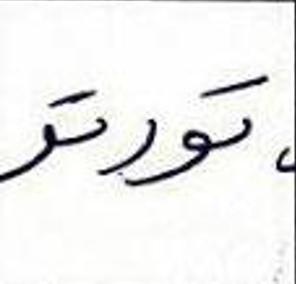 تورتر